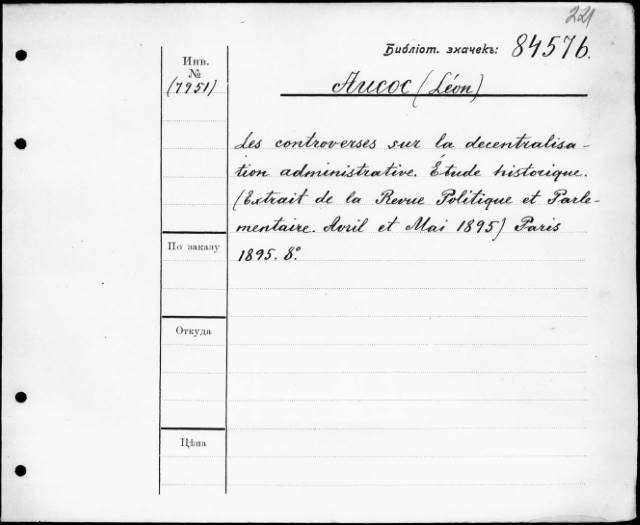 221
Библіот. значекъ: 84576.
Инв.
№
(7951)
Aucoc (Léon)
Les controverses sur la decentralisa-
tion administrative. Étude historique.
(Extrait de la Revue Politique et Parle-
mentaire. Avril et Mai 1895) Paris
1895. 8º.
По заказу
Откуда
Цѣна